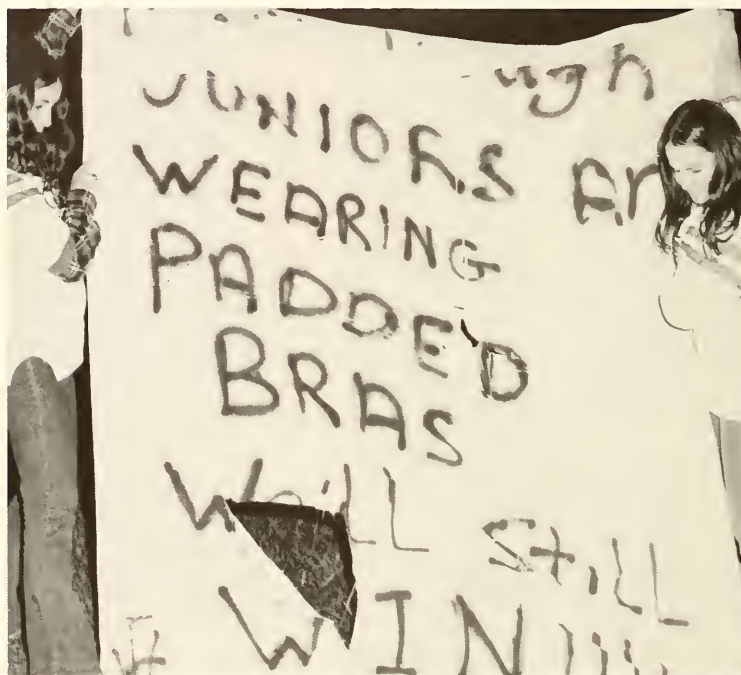 JUNIORS
WEARING
PADDED
BRAS
We'LL StiLL
WIN!!!!